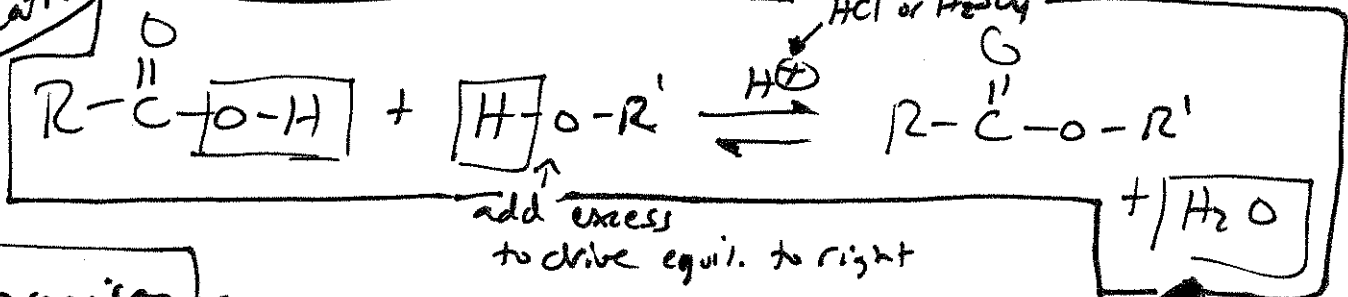 HCl or H2SO4
O
R-C-O-H + H-O-R' H⊕ ⇌ R-C-O-R'
O
+ H2O
add excess
to drive equil. to right